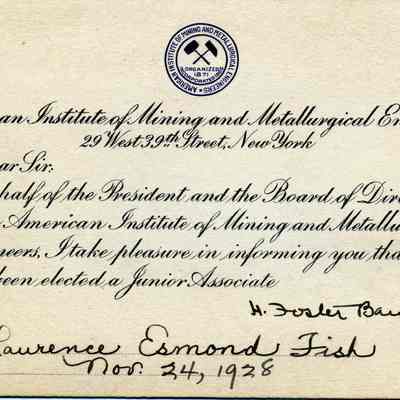 AMERICAN INSTITUTE OF MINING AND METALLURGICAL ENGINEERS
ORGANIZED
1871
INCORPORATED 1905
an Institute of Mining and Metallurgical En
29 West 39th Street, New York
ar Sir:
half of the President and the Board of Dire
American Institute of Mining and Metallu
neers, I take pleasure in informing you tha
been elected a Junior Associate
H. Foster Bai
Laurence Esmond Fish
Nov. 24, 1928